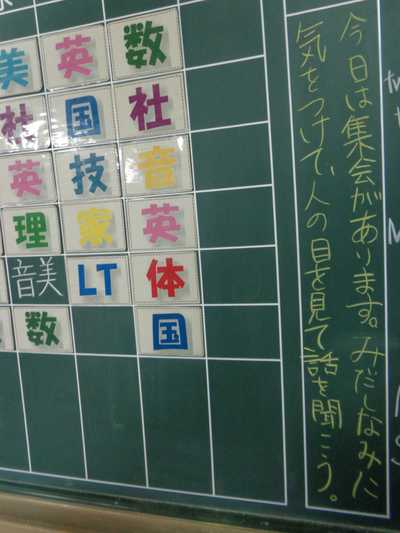 今日は集会があります。みだしなみに
気をつけて、人の目を見て話を聞こう。
数
社
音
英
体
国
英
国
技
家
LT
美
社
英
理
音美
数